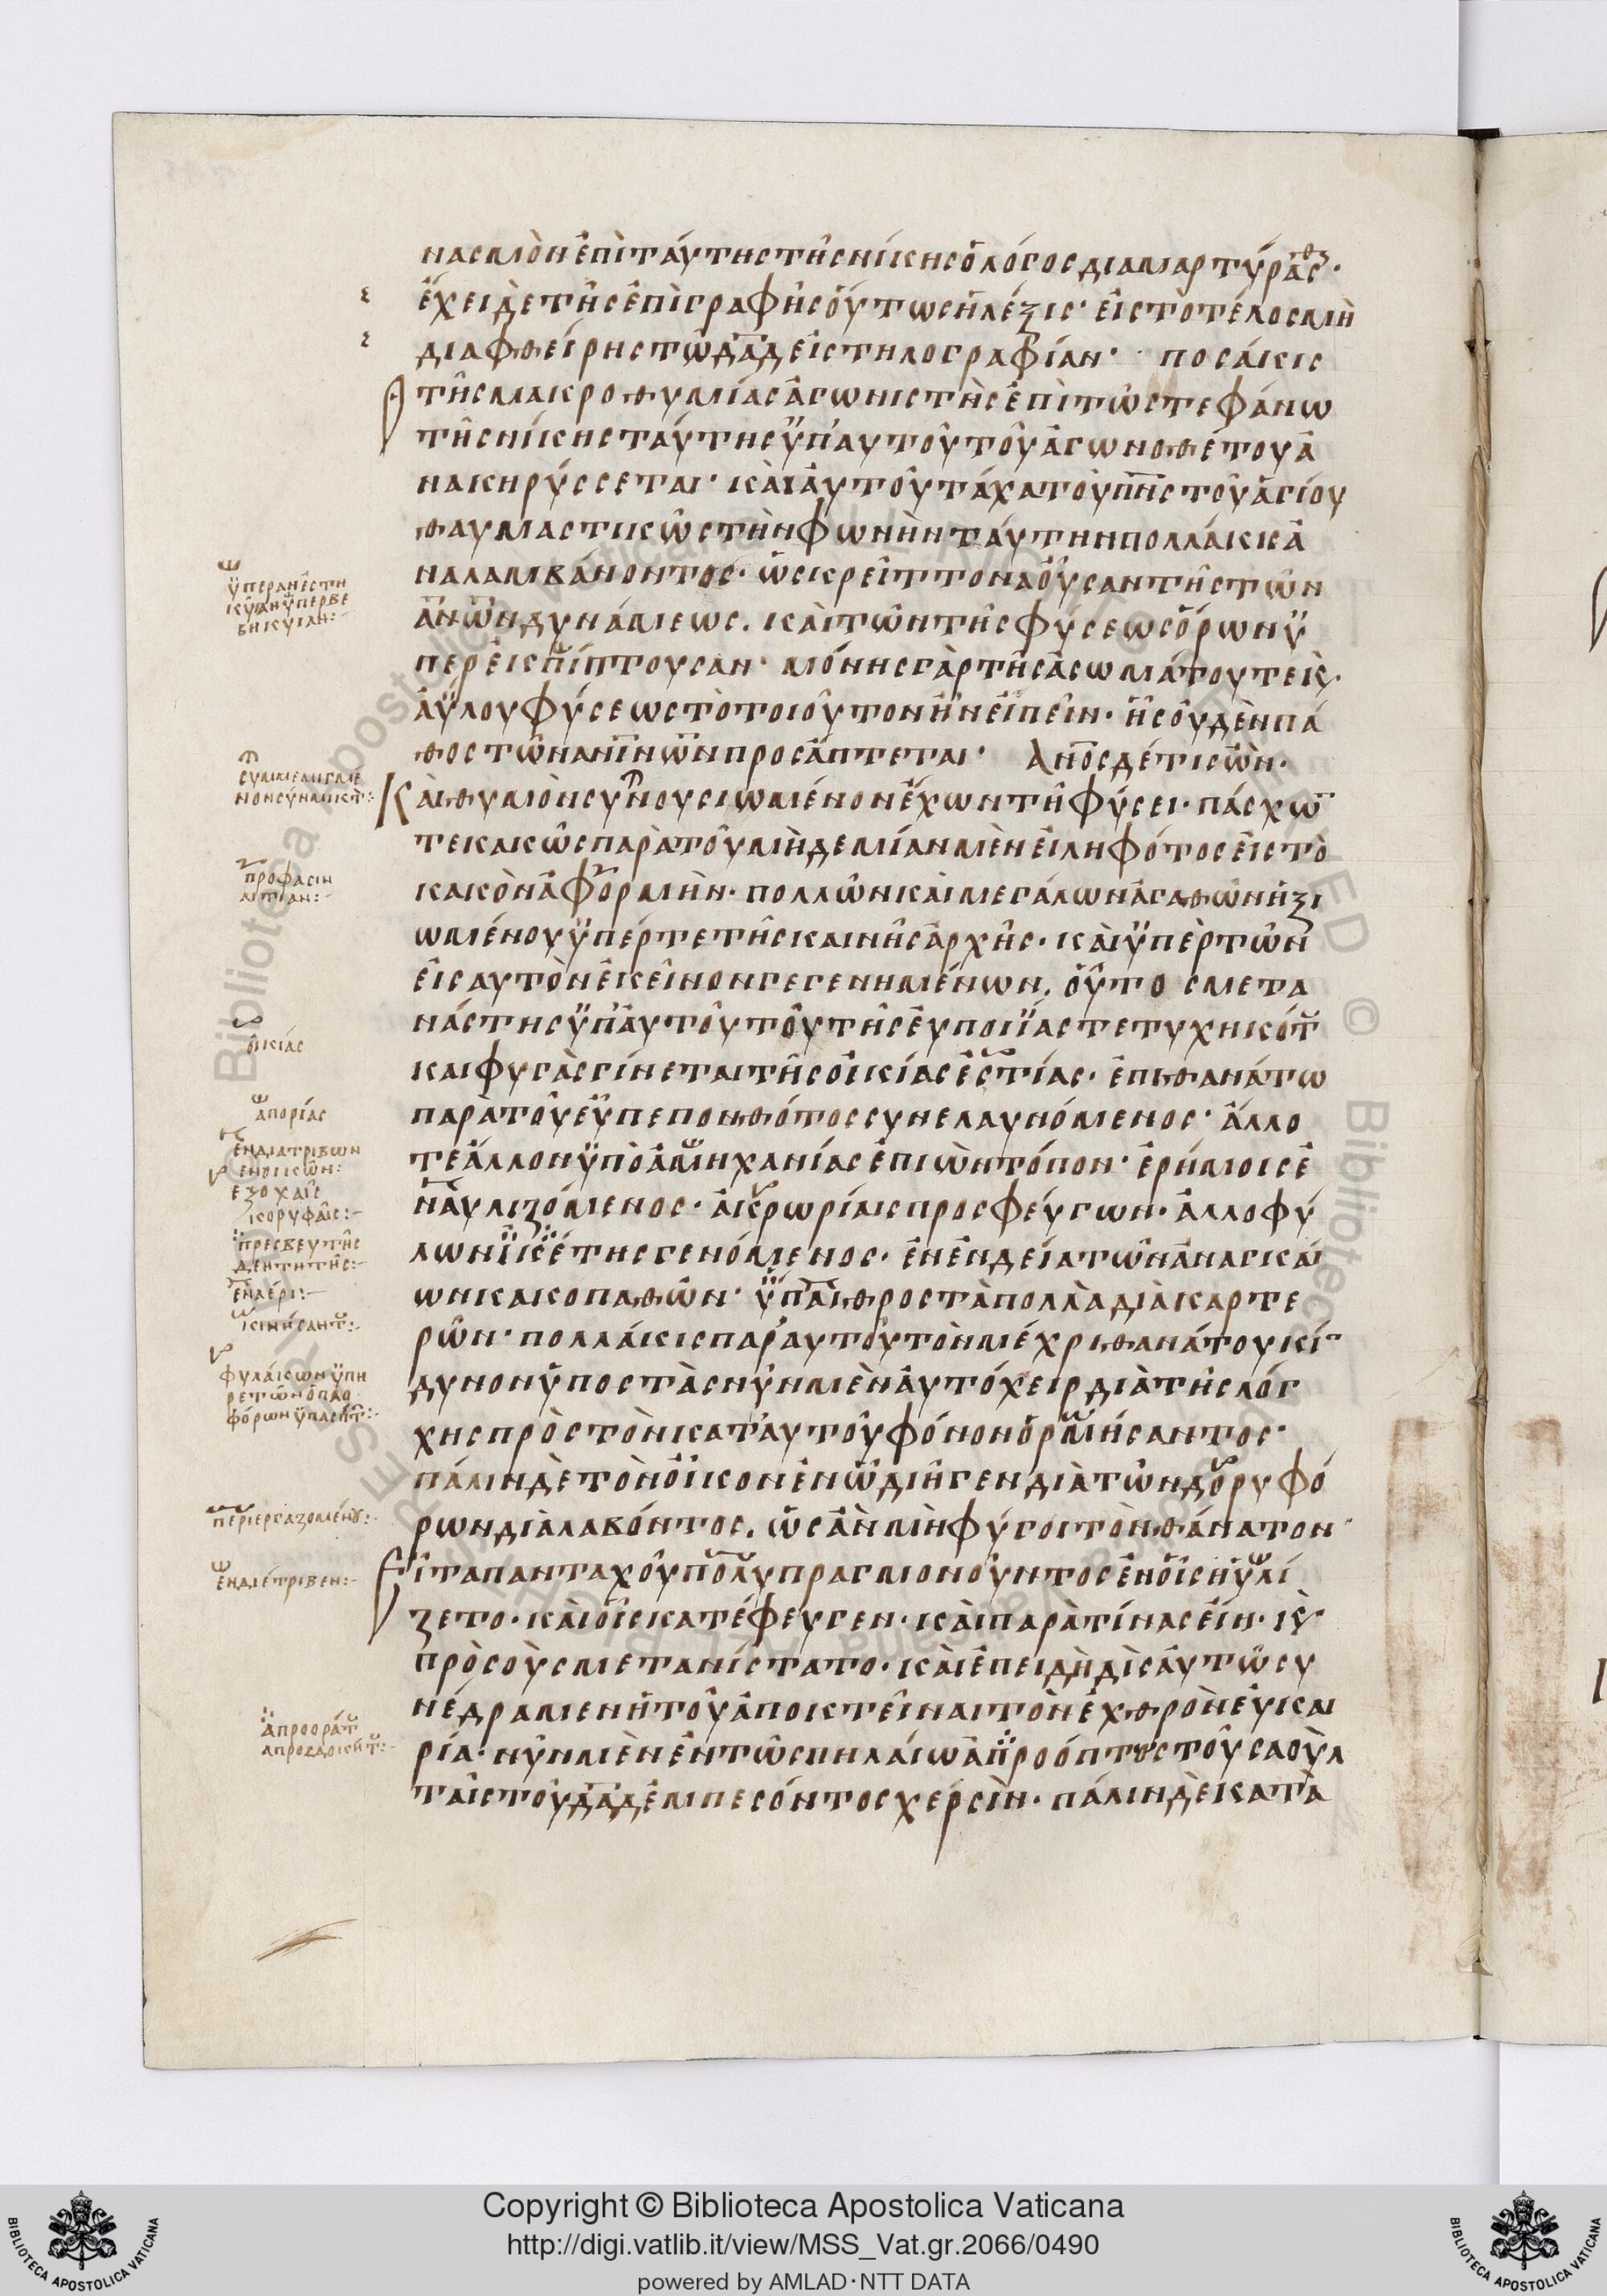 νασμὸν ἐπὶ ταύτης τῆς νίκης ὁ λόγος διαμαρτύρας·
ἔχει δὲ τῆς ἐπιγραφῆς οὕτως ἡ λέξις· εἰς τὸ τέλος μὴ
διαφθείρης τῶ δαδ εἰς στηλογραφίαν· ποσάκις
τῆς μακροθυμίας ἀγωνιστὴς ἐπὶ τῶ στεφάνω
τῆς νίκης ταύτης ὑπ' αυτοῦ τοῦ ἀγωνοθέτου ἀ
νακηρύσσεται· καὶ ἀυτοῦ τάχα τοῦ πνς τοῦ ἁγίου
θαυμαστικῶς τὴν φωνὴν ταύτην πολλάκις ἀ
ναλαμβάνοντος· ὡς κρείττονα οὖσαν τῆς τῶν
ἀνων δυνάμεως. καὶ τῶν τῆς φύσεως ὅρων ὑ
περεκπίπτουσαν· μόνης γὰρ τῆς ἀσωμάτου τε κς
ἀΰλου φύσεως τὸ τοιοῦτον ἦν εἰπεῖν· ἧς οὐδὲν πά
θος τῶν ανινων προσάπτεται· Ανος δέ τις ὢν·
Καὶ θυμὸν συνουσιωμένον ἔχων τῆ φύσει· πάσχω
τε κακῶς παρὰ τοῦ μὴδεμίαν μὲν εἰληφότος εἰς τὸ
κακὸν ἀφορμὴν· πολλῶν καὶ μεγάλων ἀγαθῶν ἠξι
ωμένου ὑπέρ τε τῆς κοινῆς ἀρχῆς· καὶ ὑπὲρ τῶν
εἰς αυτὸν ἐκεῖνον γεγενημένων. οὗτος μετα
νάστης ὑπ' ἀυτοῦ τοῦ τῆς ἐυποιΐας τετυχηκότ
και φυγὰς γίνεται τῆς οἰκίας ἑστίας· ἐπι θανάτω
παρὰ τοῦ εὖ πεπονθότος συνελαυνόμενος· ἄλλο
τε ἄλλον ὑπὸ ἀμηχανίας ἐπιὼν τόπον· ἐρήμοις ἐ
ναυλιζόμενος· ἀκρωρίαις προσφεύγων· ἀλλοφύ
λων ἱκέτης γενόμενος· ἐν ἐνδεία τῶν ἀναγκαί
ων κακοπαθῶν· ὑπαίθρος τὰ πολλὰ διὰκαρτε
ρῶν· πολλάκις παρ' αυτοῦ τὸν μέχρι θανάτου κί
δυνον ὑποστὰς νῦν μὲν ἀυτόχειρ διὰ τῆς λόγ
χης πρὸς τὸν κατ' αυτοῦ φόνον ὁρμήσαντος·
πάλιν δὲ τὸν οἶκον ἐν ὧ διῆγεν διὰ τῶν δορυφό
ρων διὰλαβόντος. ὡς ἂν μὴ φύγοι τὸν θάνατον·
Εἶτα πανταχοῦ πολυπραγμονοῦντος ἐν οἷς ηὐλί
ζετο· καὶ οἷς κατέφευγεν· καὶ παρὰ τίνας εἴη· κς
πρὸς οὓς μετανίστατο· καὶ ἐπειδὴ δὶς ἀυτῶ συ
νέδραμεν ἡ τοῦ ἀποκτεῖναι τὸν ἐχθρὸν εὐκαι
ρία· νῦν μὲν ἐν τῶ σπηλαίω ἀπροόπτως τοῦ σαοὺλ
ταῖς τοῦ δαδ ἐμπεσόντος χερσὶν· πάλιν δὲ κατὰ
ὑπερανεστη
κυῖαν ὑπερβε
βηκυιαν:
συμμεμιγμέ
νον σύνμικτ:
προφασιν
αιτιαν:
οἰκίας
ἀπορίας
ἐνδιατρίβων
ἐνοικῶν:
ἐξοχαῖς
κορυφαῖς:
πρεσβευτῆς
δεητητῆς:
ἐν ἀέρι:
κινήσαντ:
φυλάκων ὑπη
ρετῶν ὁπλο
φόρων ὑπασπτ:
περιεργαζομένου:
ἐνδιέτριβεν:
ἀπροοράτ
ἀπροσδοκήτ:
Copyright © Biblioteca Apostolica Vaticana
http://digi.vatlib.it/view/MSS_Vat.gr.2066/0490
powered by AMLAD·NTT DATA
BIBLIOTECA APOSTOLICA VATICANA
BIBLIOTECA APOSTOLICA VATICANA